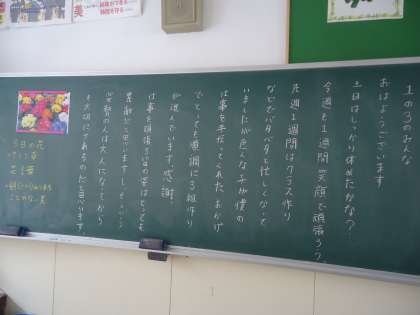 1の3のみんな
おはようございます
土日はしっかり休めたかな?
今週も1週間笑顔で頑張ろう。
先週1週間はクラス作り
などでバタバタと忙しくなって
いましたが色んな子が僕の
仕事を手伝ってくれたおかげ
でとっても順調に3組作り
が進んでいます。感謝!
仕事を頑張る皆の姿はとっても
素敵だと思いますし、
の人は大人になってから
も大切にされるのだと思います。
今日の花
花言葉
美